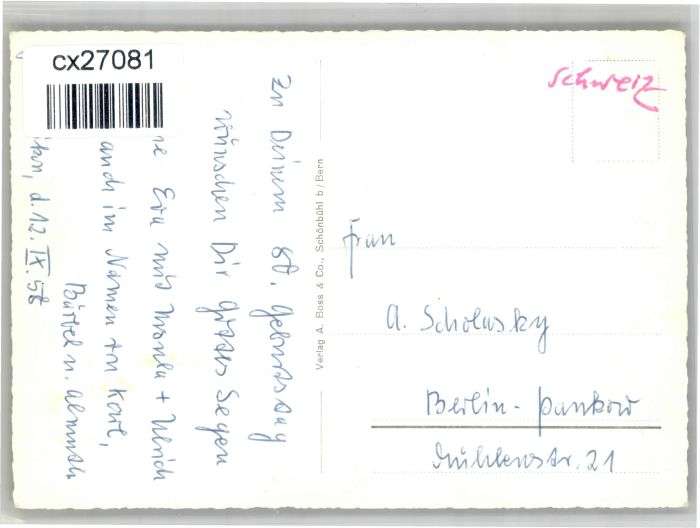 cx27081
Schweiz
Zu Deinem 80. Geburtstag
wünschen Dir Gottes Segen
re Eva mit Ursula + Ulrich
auch im Namen von Karl,
Bärbel u. Almuth
d. 12. IX. 58
Verlag A. Boss & Co., Schönbühl b/Bern
Frau
A. Scholwsky
Berlin-Pankow
Mühlenstr. 21